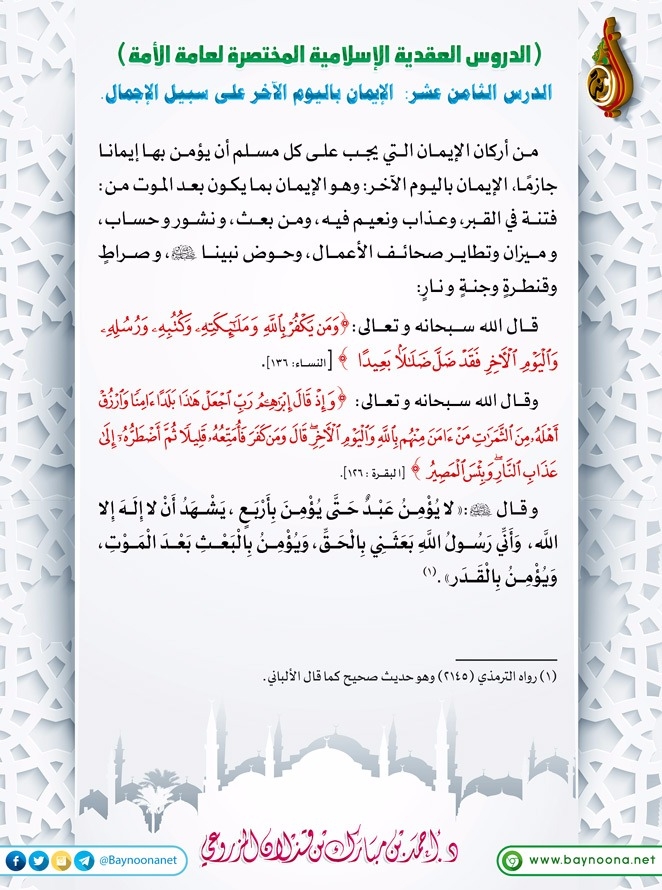 ( الدروس العقدية الإسلامية المختصرة لعامة الأمة )
الدرس الثامن عشر: الإيمان باليوم الآخر على سبيل الإجمال.
من أركان الإيمان التي يجب على كل مسلم أن يؤمن بها إيمانا
جازمًا، الإيمان باليوم الآخر: وهو الإيمان بما يكون بعد الموت من:
فتنة في القبر، وعذاب ونعيم فيه، ومن بعث، ونشور وحساب،
وميزان وتطاير صحائف الأعمال، وحوض نبينا ﷺ، وصراطٍ
وقنطرةٍ وجنةٍ ونارٍ:
قال الله سبحانه وتعالى: ﴿وَمَن يَكْفُرْ بِاللَّهِ وَمَلَٰٓئِكَتِهِۦ وَكُتُبِهِۦ وَرُسُلِهِۦ
وَٱلْيَوْمِ ٱلْأٓخِرِ فَقَدْ ضَلَّ ضَلَٰلًۢا بَعِيدًا ﴾ [النساء: ١٣٦].
وقال الله سبحانه وتعالى: ﴿وَإِذْ قَالَ إِبْرَٰهِـۧمُ رَبِّ ٱجْعَلْ هَٰذَا بَلَدًا ءَامِنًا وَٱرْزُقْ
أَهْلَهُۥ مِنَ ٱلثَّمَرَٰتِ مَنْ ءَامَنَ مِنْهُم بِٱللَّهِ وَٱلْيَوْمِ ٱلْأٓخِرِ ۖ قَالَ وَمَن كَفَرَ فَأُمَتِّعُهُۥ قَلِيلًا ثُمَّ أَضْطَرُّهُۥٓ إِلَىٰ
عَذَابِ ٱلنَّارِ ۖ وَبِئْسَ ٱلْمَصِيرُ ﴾ [البقرة: ١٢٦].
وقال ﷺ: «لا يُؤْمِنُ عَبْدٌ حَتَّى يُؤْمِنَ بِأَرْبَعٍ، يَشْهَدُ أَنْ لا إِلَهَ إِلا
الله، وَأَنِّي رَسُولُ اللَّهِ بَعَثَنِي بِالْحَقِّ، وَيُؤْمِنُ بِالْبَعْثِ بَعْدَ الْمَوْتِ،
وَيُؤْمِنُ بِالْقَدَرِ».(١)
(١) رواه الترمذي (٢١٤٥) وهو حديث صحيح كما قال الألباني.
د. أحمد بن مبارك بن قذلان المزروعي
@Baynoonanet
www.baynoona.net